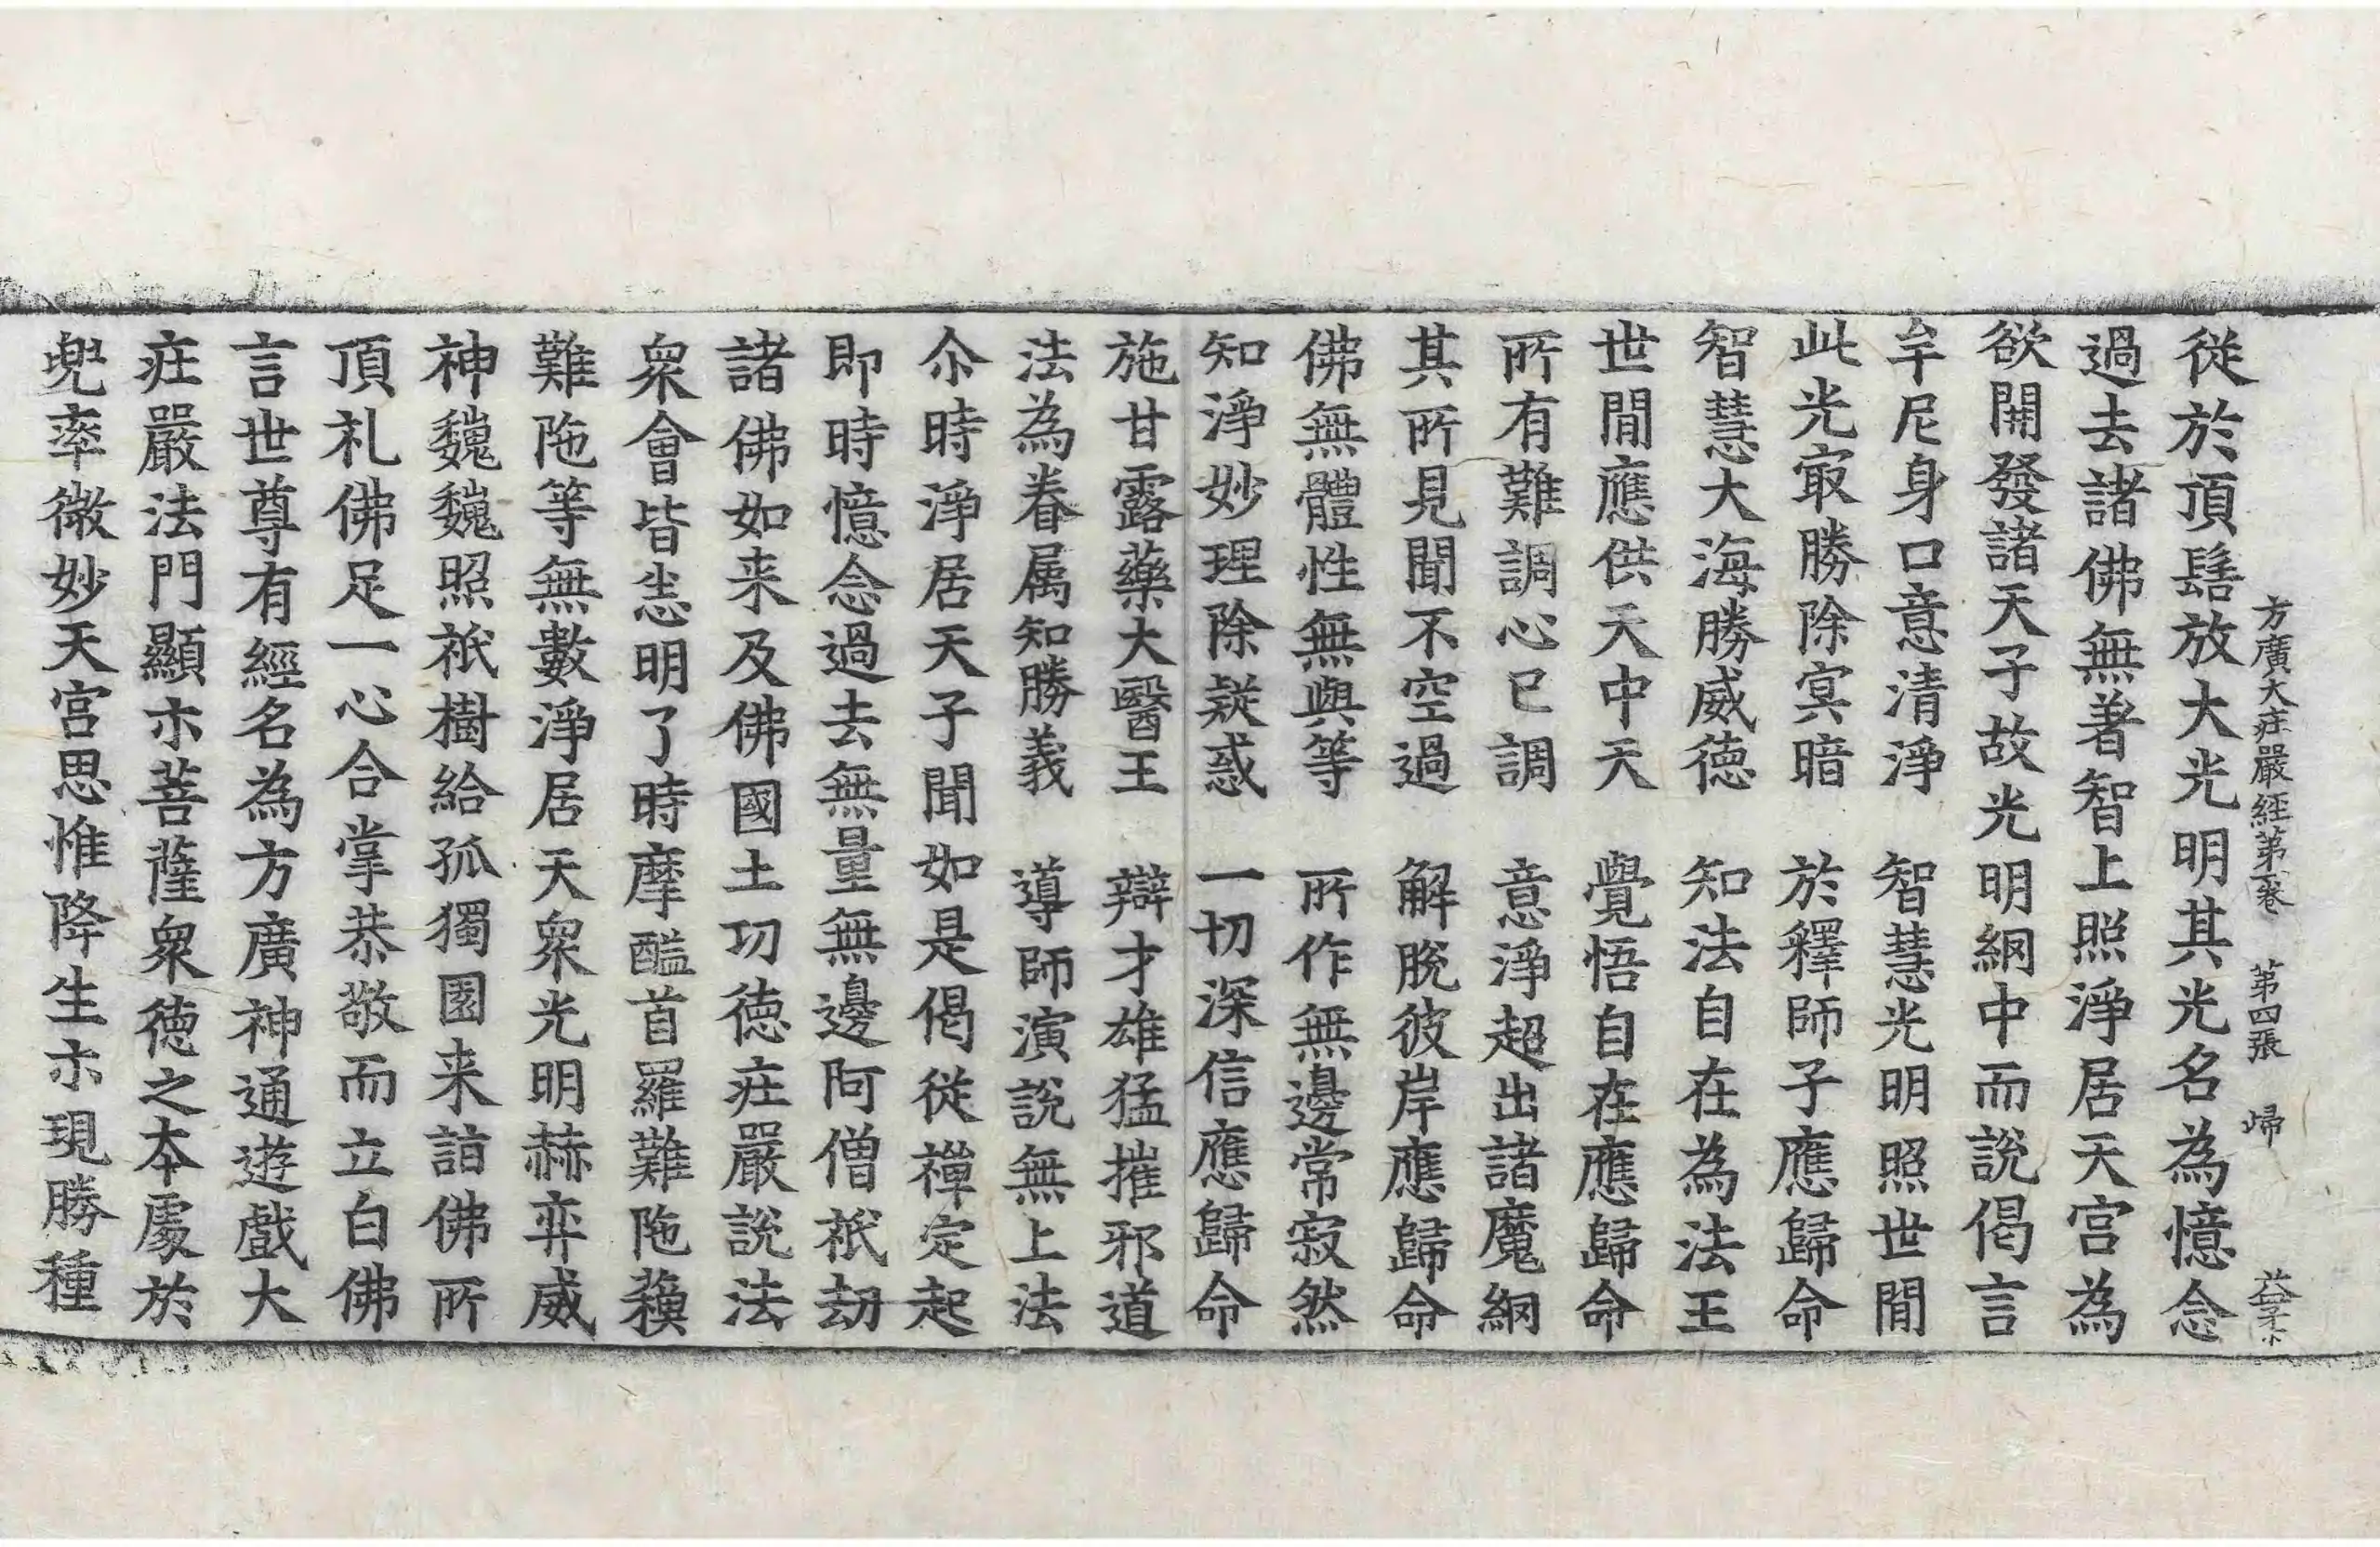 方廣大庄嚴経第一卷 第四張 歸
従於頂髻放大光明其光名為憶念
過去諸佛無著智上照淨居天宮為
欲開發諸天子故光明網中而說偈言
牟尼身口意清淨 智慧光明照世閒
此光㝡勝除冥暗 於釋師子應歸命
智慧大海勝威徳 知法自在為法王
世閒應供天中天 覺悟自在應歸命
所有難調心已調 意淨超出諸魔網
其所見聞不空過 解脫彼岸應歸命
佛無體性無與等 所作無邊常寂然
知淨妙理除疑惑 一切深信應歸命
施甘露藥大醫王 辯才雄猛摧邪道
法為眷属知勝義 導師演說無上法
尒時淨居天子聞如是偈従禪定起
即時憶念過去無量無邊阿僧祇劫
諸佛如来及佛國土功徳庄嚴說法
衆會皆悉明了時摩醯首羅難陁蘋
難陁等無數淨居天衆光明赫弈威
神巍巍照祇樹給孤獨園来詣佛所
頂礼佛足一心合掌恭敬而立白佛
言世尊有經名為方廣神通遊戲大
庄嚴法門顯示菩薩衆徳之本處於
兜率微妙天宮思惟降生示現勝種